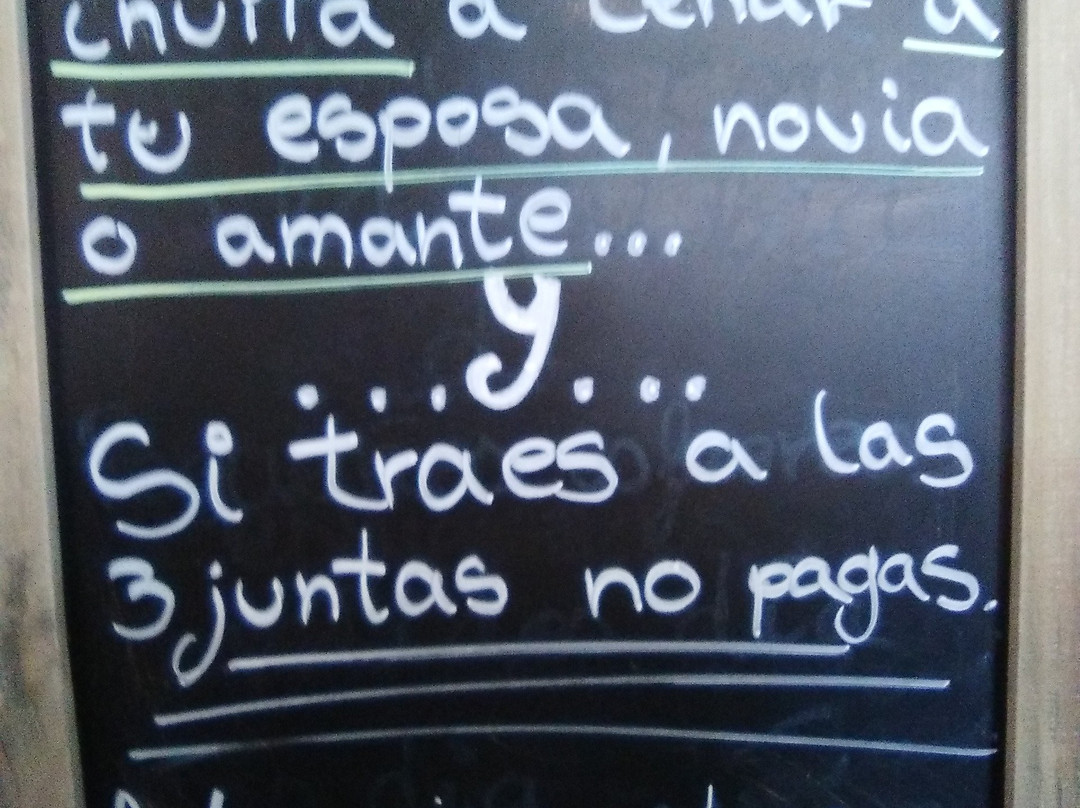 a cenar a
tu esposa, novia
o amante...
...y...
Si traes a las
3 juntas no pagas.